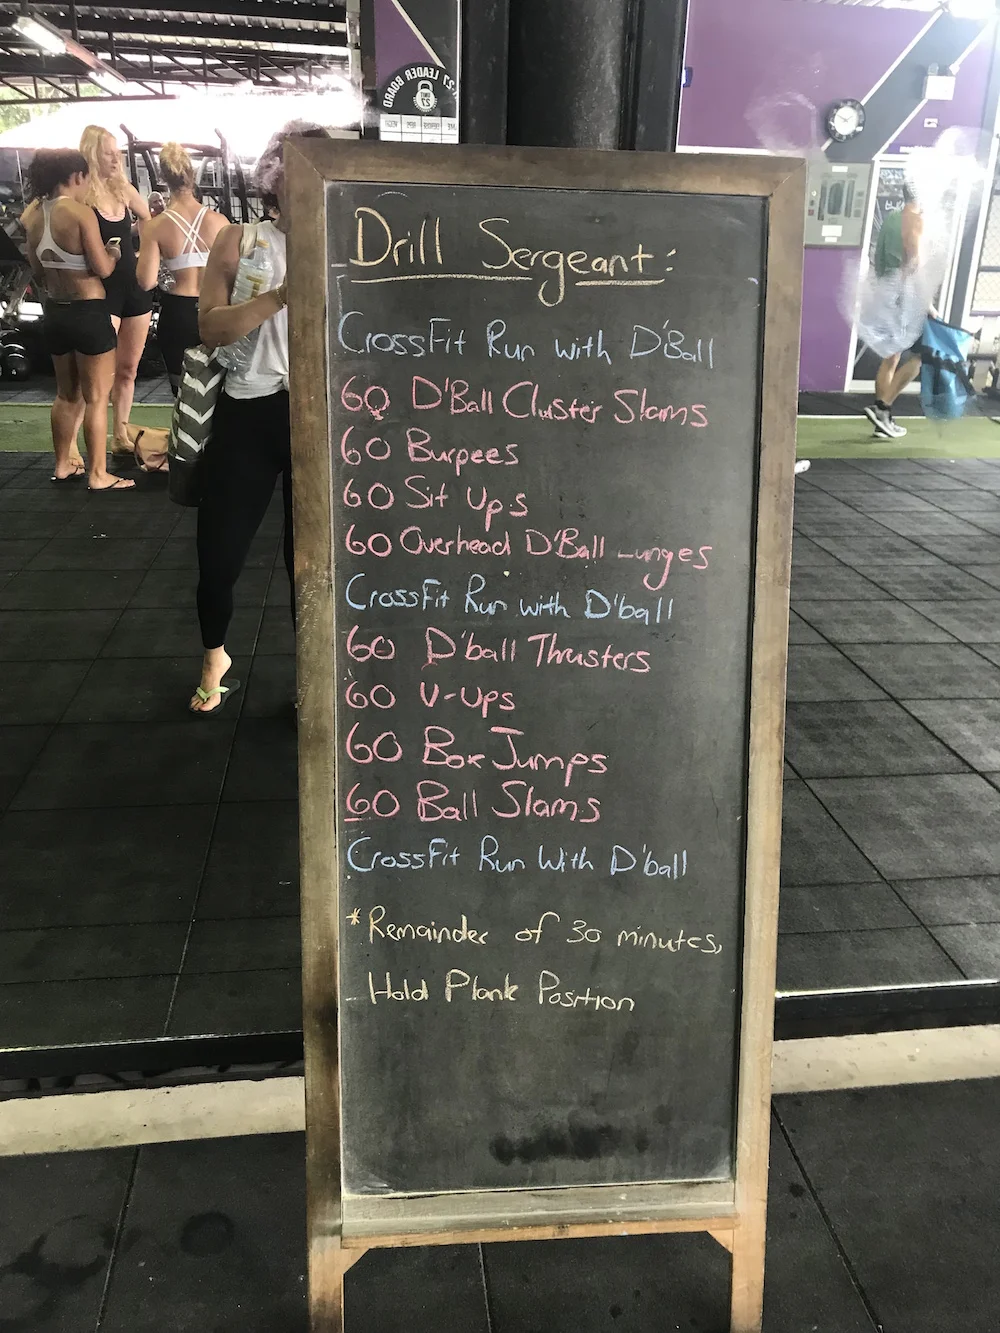 27 LEADER BOARD
UNIT 27
Drill Sergeant:
CrossFit Run with D'Ball
60 D'Ball Cluster Slams
60 Burpees
60 Sit Ups
60 Overhead D'Ball Lunges
CrossFit Run with D'ball
60 D'ball Thrusters
60 V-Ups
60 Box Jumps
60 Ball Slams
CrossFit Run With D'ball
*Remainder of 30 minutes,
Hold Plank Position